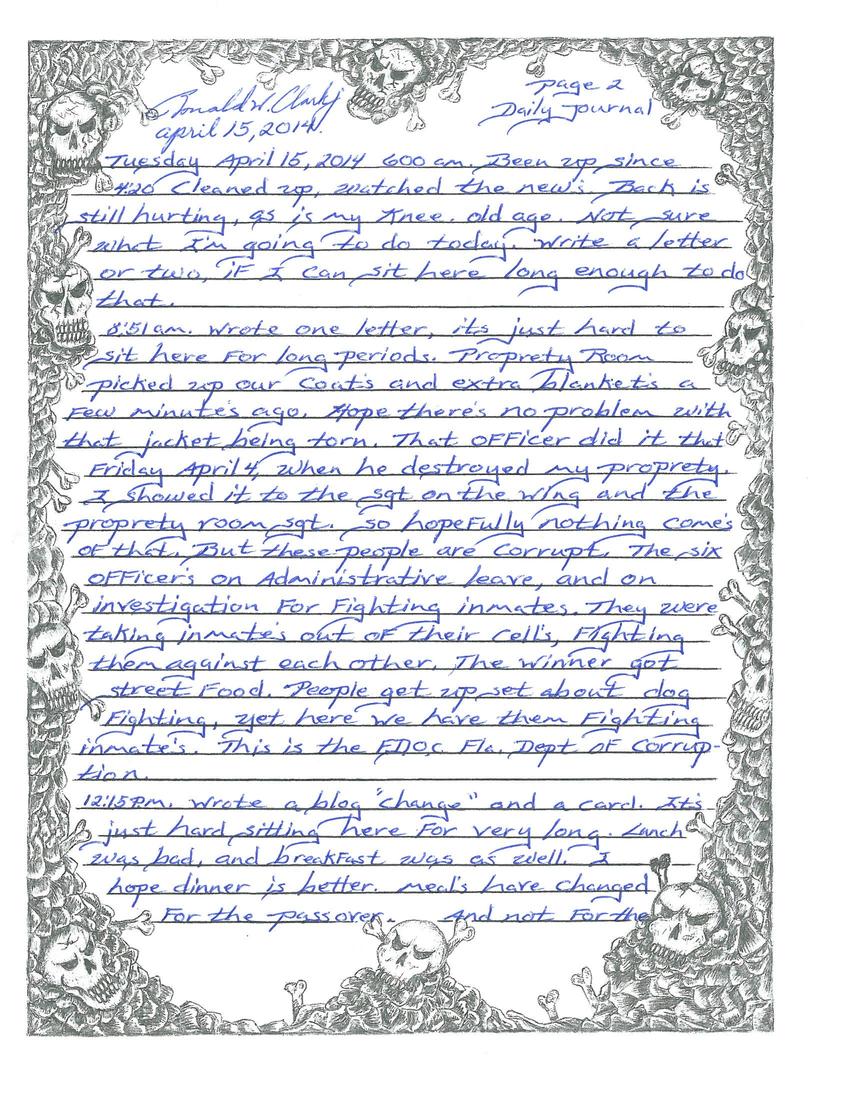 Ronald W. Clark Jr
April 15, 2014.
page 2
Daily Journal
Tuesday April 15, 2014 600 am. Been up since
4:20 Cleaned up, watched the new's. Back is
still hurting, as is my Knee. old age. Not sure
what I'm going to do today. Write a letter
or two, if I can sit here long enough to do
that.
8:51 am. Wrote one letter, its just hard to
sit here For long periods. Proprety Room
picked up our Coat's and extra blanket's a
Few minute's ago. Hope there's no problem with
that jacket being torn. That OFFicer did it that
Friday April 4, when he destroyed my proprety.
I showed it to the sgt on the wing and the
proprety room sgt. So hopeFully nothing Come's
oF that. But these people are Corrupt. The six
OFFicer's on Administrative leave, and on
investigation For Fighting inmates. They were
taking inmate's out oF their Cell's, Fighting
them against each other. The winner got
street Food. People get up set about dog
Fighting, yet here we have them Fighting
inmate's. This is the FDOC Fla. Dept oF Corrup-
tion.
12:15 Pm. Wrote a blog "change" and a card. It's
just hard sitting here For very long. Lunch
was bad, and breakFast was as well. I
hope dinner is better. Meal's have changed
For the passover. And not For the